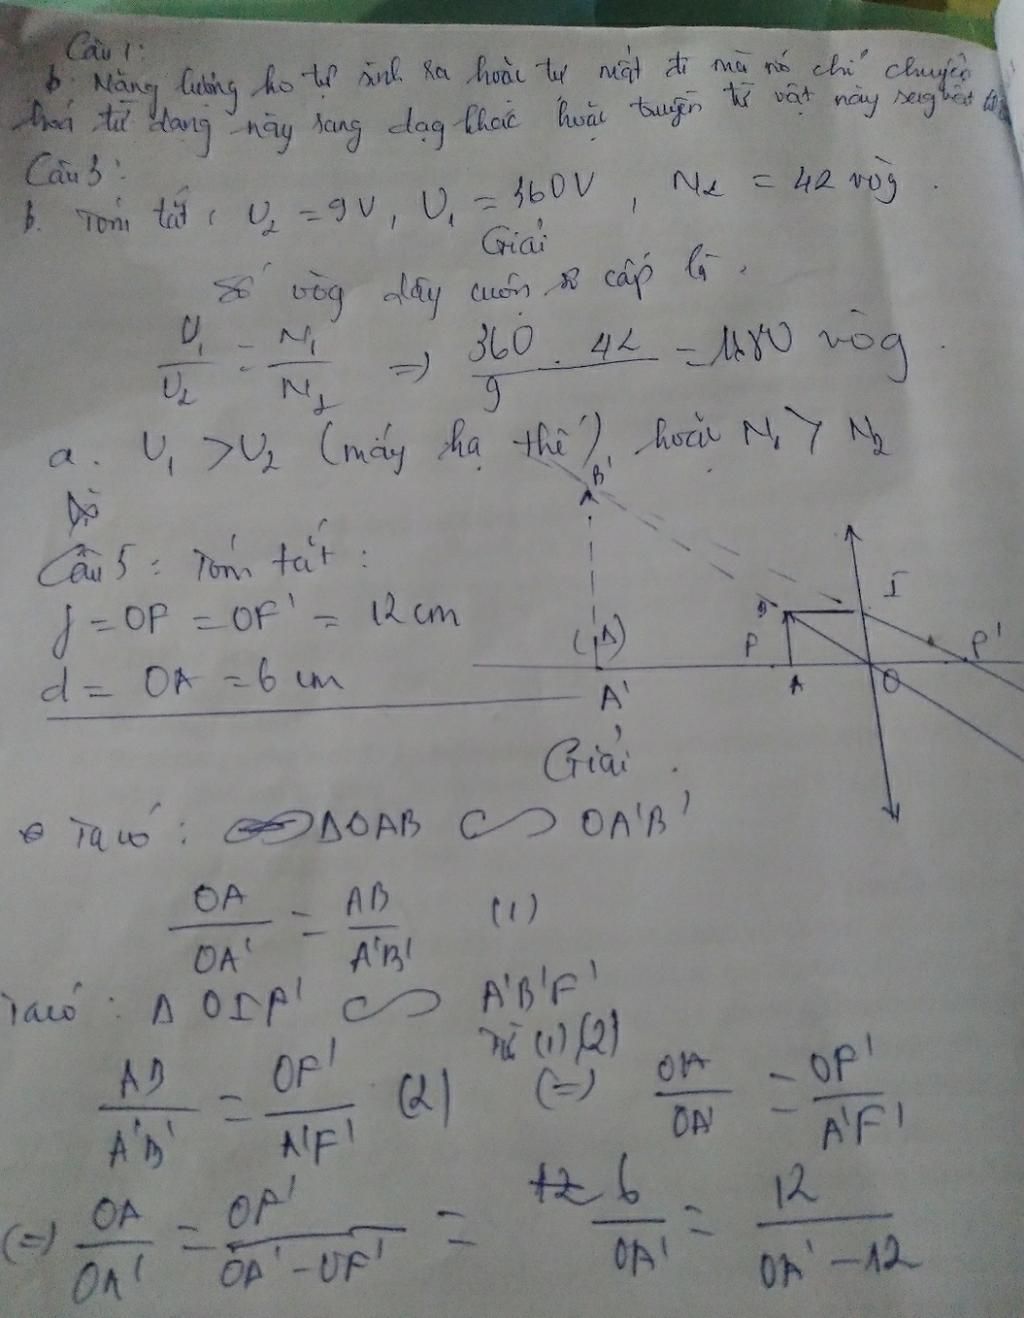 Câu 1:
b. Năng lượng ko tự sinh ra hoặc tự mất đi mà nó chỉ chuyển
hoá từ dạng này sang dạg khác hoặc truyền từ vật này sag vật
Câu 3:
b. Tóm tắt: U₂ = 9V, U₁ = 360V, N₂ = 42 vòg.
Giải
Số vòg dây cuộn sơ cấp là.
U₁/U₂ = N₁/N₂ => 360 . 42 / 9 = 1680 vòg.
a. U₁ > U₂ (máy hạ thế), hoặc N₁ > N₂
B'
Câu 5: Tóm tắt:
I
f = OF = OF' = 12 cm
B
(Δ) F F'
d = OA = 6 cm
A' A O
Giải.
Ta có: ΔOAB ∽ OA'B'
OA/OA' = AB/A'B' (1)
Ta có: Δ OIF' ∽ A'B'F'
Từ (1) (2)
AB/A'B' = OF'/A'F' (2) (=) OA/OA' = OF'/A'F'
(=) OA/OA' = OF'/OA' - OF' = 12 6/OA' = 12/OA' - 12